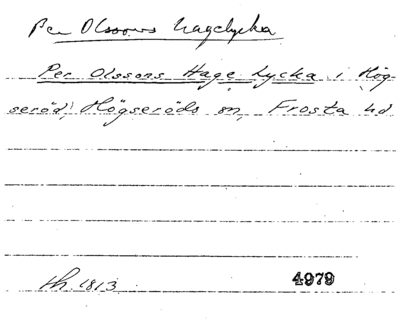 Per Olssons hagelycka
Per Olssons Hage Lycka i Hög-
seröd, Högseröds sn, Frosta hd
th. 1813 4979